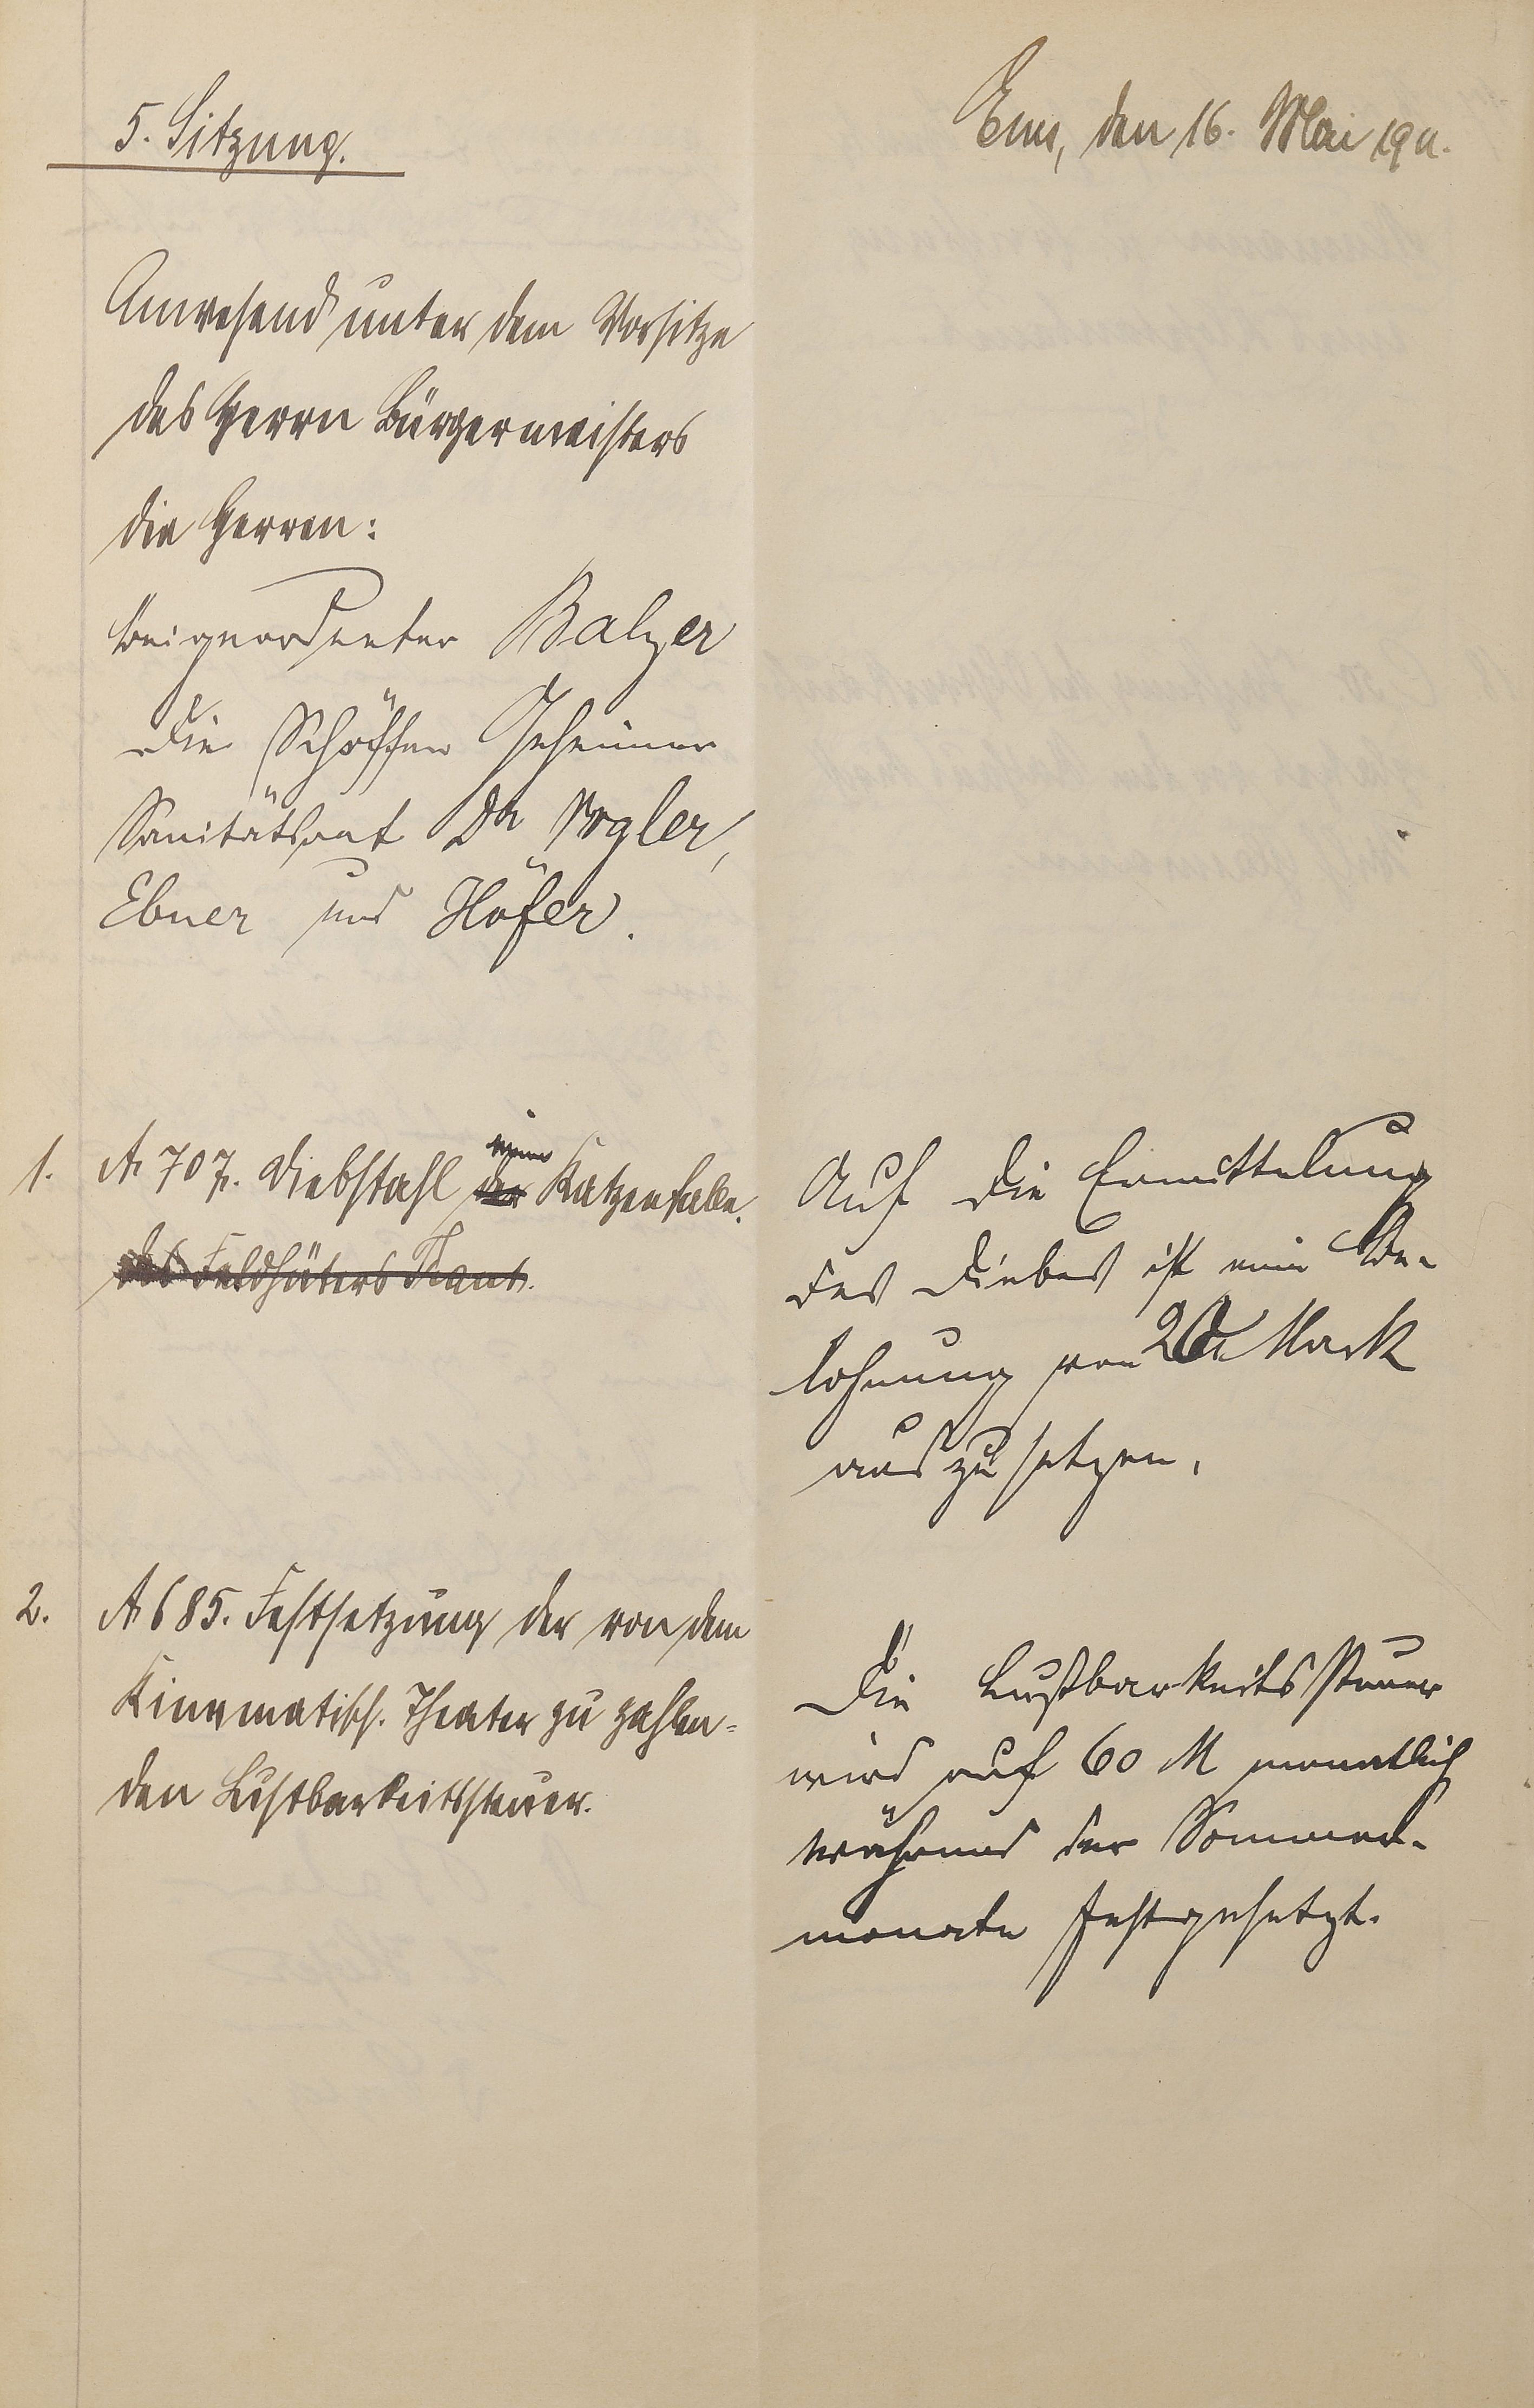 5. Sitzung.
Ems, den 16. Mai 1911.
Anwesend unter dem Vorsitze
des Herrn Bürgermeisters
die Herren:
Beigeordneter Balzer
die Schöffen Geheimer
Sanitätsrat Dr Vogler,
Ebner und Höfer.
1. A 707. Diebstahl einer Katzenfalle.
des Feldhüters
Auf die Ermittelung
des Diebes ist eine Be-
lohnung von 20 Mark
auszusetzen.
2. A 685. Festsetzung der von dem
Kinematisch. Theater zu zahlen-
den Lustbarkeitssteuer.
Die Lustbarkeitssteuer
wird auf 60 M monatlich
während der Sommer-
monate festgesetzt.